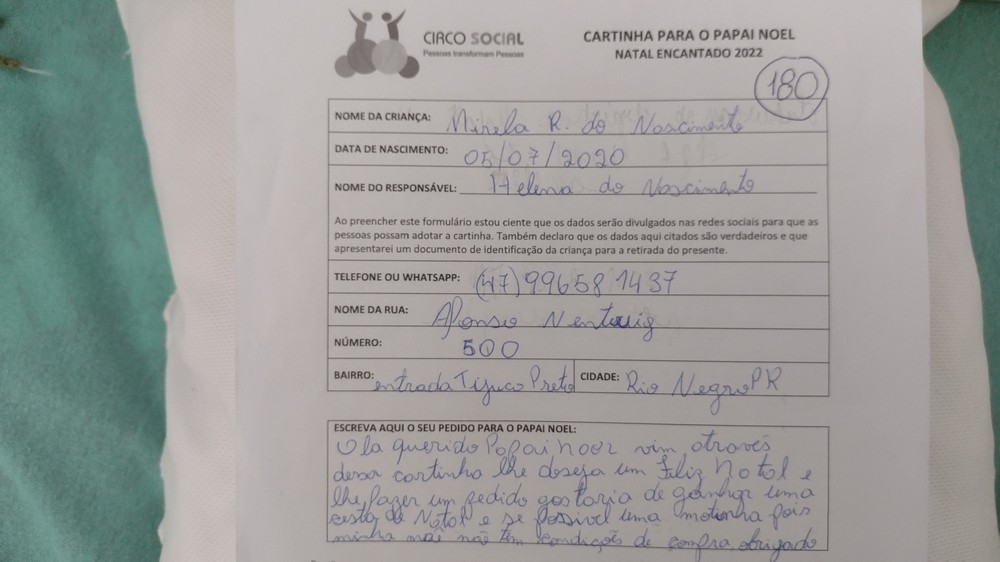 CIRCO SOCIAL
Pessoas transformam Pessoas
CARTINHA PARA O PAPAI NOEL
NATAL ENCANTADO 2022
180
NOME DA CRIANÇA: Mirela R. do Nascimento
DATA DE NASCIMENTO: 05/07/2020
NOME DO RESPONSÁVEL: Helena do Nascimento
Ao preencher este formulário estou ciente que os dados serão divulgados nas redes sociais para que as
pessoas possam adotar a cartinha. Também declaro que os dados aqui citados são verdadeiros e que
apresentarei um documento de identificação da criança para a retirada do presente.
TELEFONE OU WHATSAPP: (47) 99658 1437
NOME DA RUA: Afonso
NÚMERO: 500
BAIRRO: entrada Tijuco Preto CIDADE: Rio Negro PR
ESCREVA AQUI O SEU PEDIDO PARA O PAPAI NOEL:
Ola querido Papai noel vim através
dessa cartinha lhe deseja um Feliz Natal e
lhe fazer um pedido gostaria de ganhar uma
cesta de Natal e se possivel uma motinha pois
minha mãe não tem condições de compra, obrigado